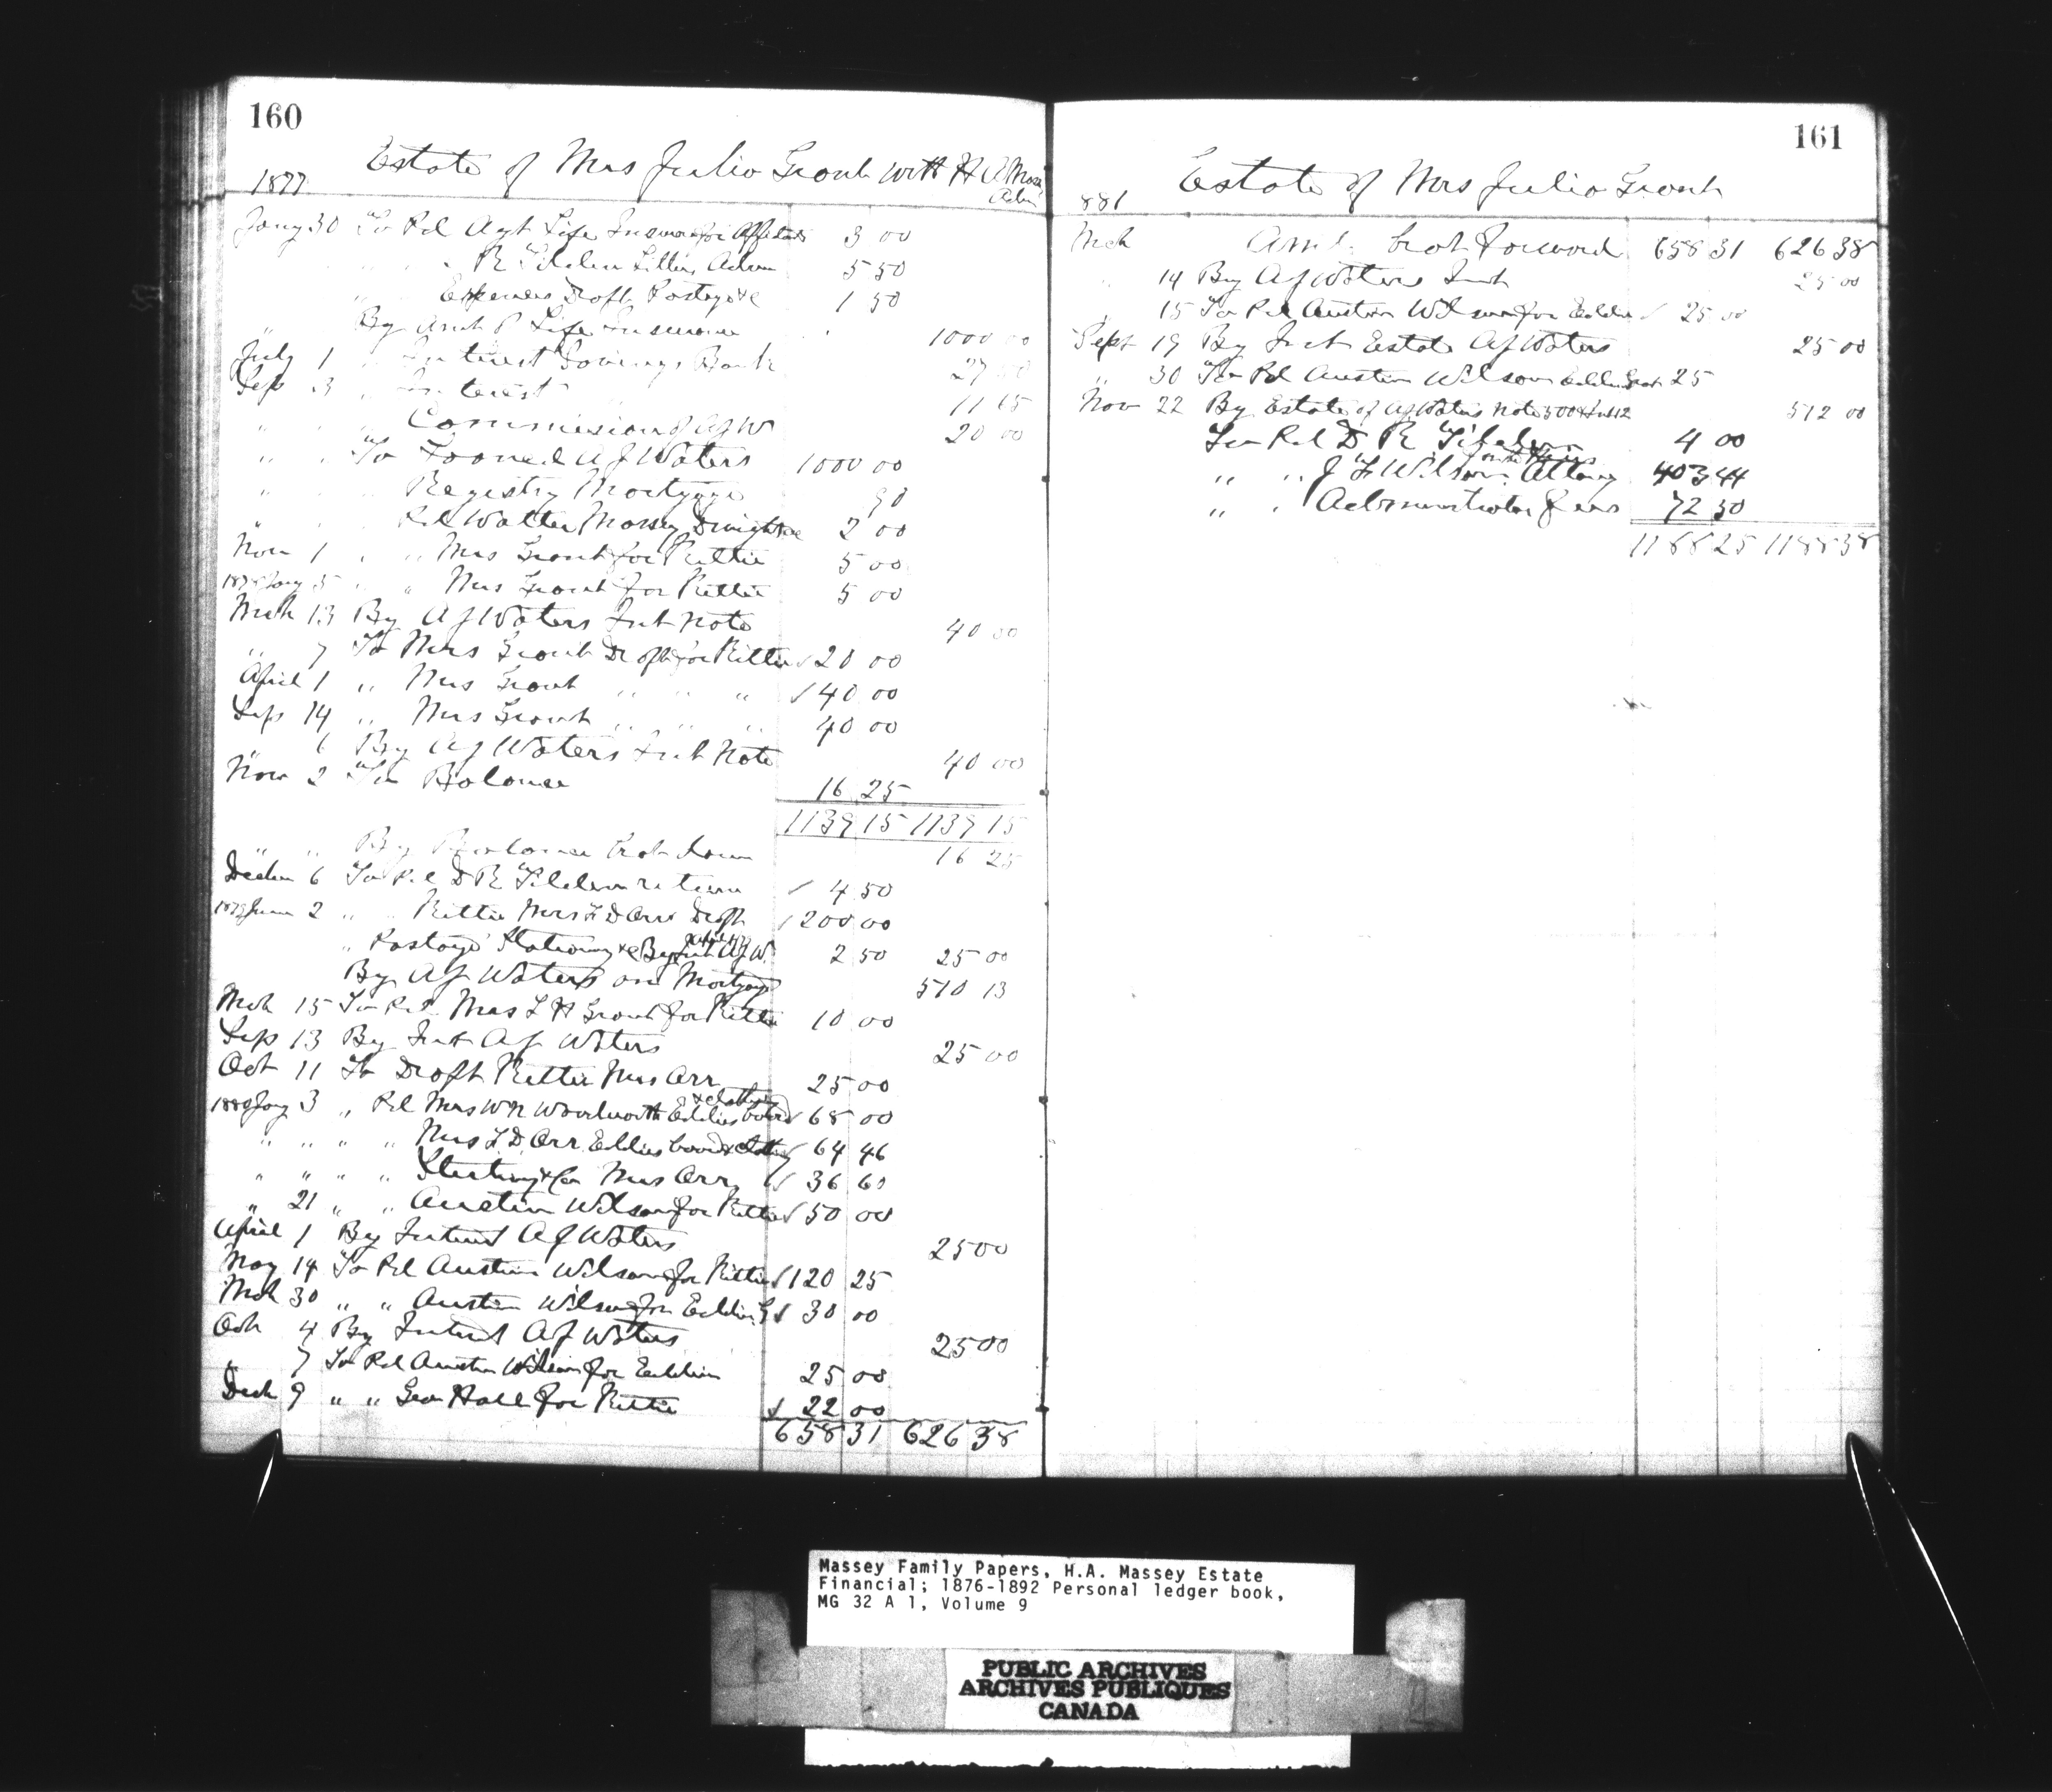 160
Estate of Mrs Julia Grout with H A Mass
Adm
1877
Jany 30 To Pd Agt Life Insurance for 3 00
" " " R Tilden Letters Adm 5 50
" " Expenses Draft Postage &c 1 50
By Amt P Life Insurance 1000 00
July 1 " Interest Savings Bank 27 50
Sep 3 " Interest 11 65
" " Commission of AJW 20 00
" " To Loaned A J Waters 1000 00
" " " Registry Mortgage 90
" " " Pd Walter Massey Dwight 2 00
Nov 1 " " Mrs Grout for Kittie 5 00
1878 Jany 5 " " Mrs Grout for Kittie 5 00
Mch 13 By A J Waters Int Note 40 00
" 7 To Mrs Grout Draft for Kittie √ 20 00
April 1 " Mrs Grout " " " √ 40 00
Sep 14 " Mrs Grout " " " 40 00
" 6 By A J Waters Int Note 40 00
Nov 2 To Balance 16 25
1139 15 1139 15
" " By Balance Brot down 16 25
Decem 6 To Pd D R Tilden return √ 4 50
1879 June 2 " " Kittie Mrs L D Orr Draft √ 200 00
" Postage Stationery &c By Int A J W. 2 50 25 00
By A J Waters on Mortgage 510 13
Mch 15 To Pd Mrs L H Grout for Kittie 10 00
Sep 13 By Int A J Waters 25 00
Oct 11 To Draft Kittie Mrs Orr 25 00
& clothing
1880 Jany 3 " Pd Mrs W N Woodworth Eddies board √ 68 00
" " " " Mrs L D Orr Eddies board & clothing √ 64 46
" " " " Sterling & Co Mrs Orr √ 36 60
" 21 " " Austin Wilson for Kittie √ 50 00
April 1 By Interest A J Waters 25 00
May 14 To Pd Austin Wilson for Kittie √ 120 25
Mch 30 " " Austin Wilson for Eddie G √ 30 00
Oct 4 By Interest A J Waters 25 00
" 7 To Pd Austin Wilson for Eddie 25 00
Dech 9 " " Geo Hall for Kittie √ 22 00
658 31 626 38
161
Estate of Mrs Julia Grout
881
Mch Amt. brot forward 658 31 626 38
" 14 By A J Waters Int 25 00
" 15 To Pd Austin Wilson for Eddie √ 25 00
Sept 19 By Int Estate A J Waters 25 00
" 30 To Pd Austin Wilson Eddie Grout 25
Nov 22 By Estate of A J Waters Note 500 & Int 12 512 00
To Pd D R Tilden 4 00
" " J F Wilson Attorney 403 44
" " Administrator fees 72 50
1188 25 1188 38
Massey Family Papers, H.A. Massey Estate
Financial; 1876-1892 Personal ledger book,
MG 32 A 1, Volume 9
PUBLIC ARCHIVES
ARCHIVES PUBLIQUES
CANADA